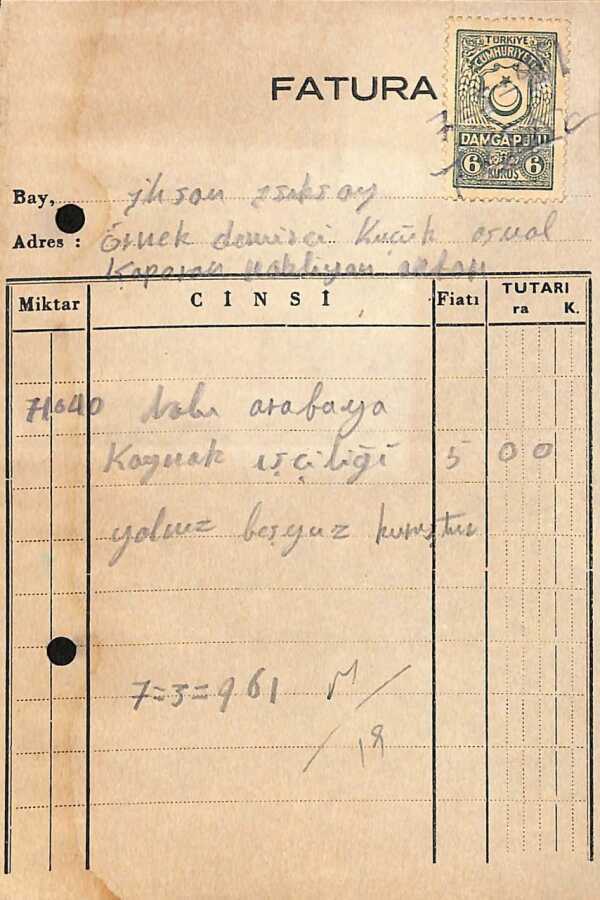 TÜRKİYE
CUMHURİYETİ
FATURA
DAMGA PULU
6 KURUŞ 6
Bay, ihsan
Adres : Örnek demirci Küçük
nakliyan
Miktar CİNSİ Fiatı TUTARI
ra K.
71040 nolu arabaya
Kaynak işçiliği 5 00
yalnız beşyuz kuruştur
7=3=961
19